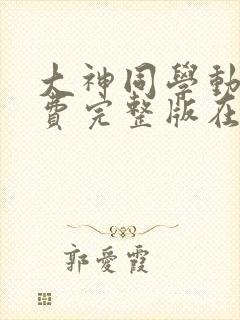 大神同學動
費完整版在
郭愛霞